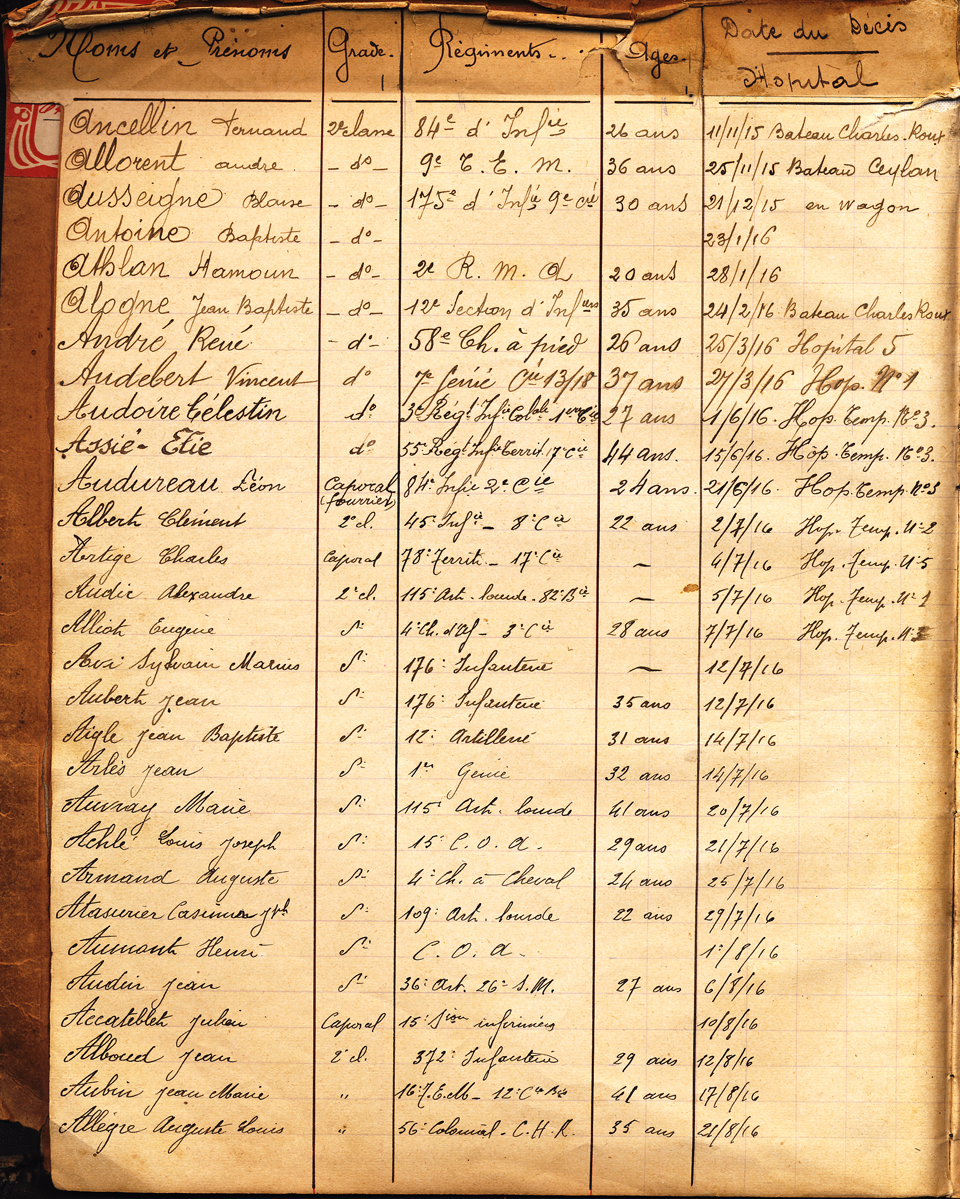 Noms et Prénoms Grade. Régiments.. Ages. Date du Décès
Hopital
Ancellin Fernand 2e classe 84e d'Infie 26 ans 11/11/15 Bateau Charles-Roux
Allorent André - do - 9e T. E. M. 36 ans 25/11/15 Bateau Ceylan
Ausseigne Blaise - do - 175e d'Infie 9e Cie 30 ans 21/12/15 en wagon
Antoine Baptiste - do - 23/1/16
Athlan Hamoun - do - 2e R. M. A 20 ans 28/1/16
Alogne Jean Baptiste - do - 12e Section d'Infiers 35 ans 24/2/16 Bateau Charles Roux
André René - do - 58e Ch. à pied 26 ans 25/3/16 Hopital 5
Audebert Vincent do 7e Génie Cie 13/18 37 ans 27/3/16 Hop. No 1
Audoire Célestin do 3e Régt Infie Colale 1ere Cie 27 ans 1/6/16. Hop. Temp. No 3.
Assié - Elie do 55e Régt Infie Territ. 17e Cie 44 ans. 15/6/16. Hop. Temp. No 3.
Audureau Léon Caporal 84e Infie 2e Cie 24 ans. 21/6/16. Hop. Temp. No 3
(fourrier)
Albert Clément 2e cl. 45e Infie - 8e Cie 22 ans 2/7/16 Hop. Temp. No 2
Artige Charles Caporal 78e Territ. - 17e Cie - 4/7/16 Hop. Temp. No 5
Audic Alexandre 2e cl. 115e Art. lourde - 82e Bie - 5/7/16 Hop. Temp. No 1
Allioth Eugène do 4e Ch. d'Af - 3e Cie 28 ans 7/7/16 Hop. Temp. No
Sylvain Marius do 176e Infanterie - 12/7/16
Aubert Jean do 176e Infanterie 35 ans 12/7/16
Aigle Jean Baptiste do 12e Artillerie 31 ans 14/7/16
Arlès Jean do 1er Génie 32 ans 14/7/16
Auvray Marie do 115e Art. lourde 41 ans 20/7/16
Achlé Louis Joseph do 15e C. O. A. 29 ans 21/7/16
Armand Auguste do 4e Ch. à Cheval 24 ans 25/7/16
do 109e Art. lourde 22 ans 29/7/16
Aumont Henri do C. O. A. 1e/8/16
Audin Jean do 36e Art. 26e S.M. 27 ans 6/8/16
Julien Caporal 15e Son infirmiers 10/8/16
Alboud Jean 2e cl. 372e Infanterie 29 ans 12/8/16
Aubin Jean Marie " 16e T.E.M - 12e Cie 41 ans 17/8/16
Allègre Auguste Louis " 56e Colonial - C.H.R. 35 ans 21/8/16